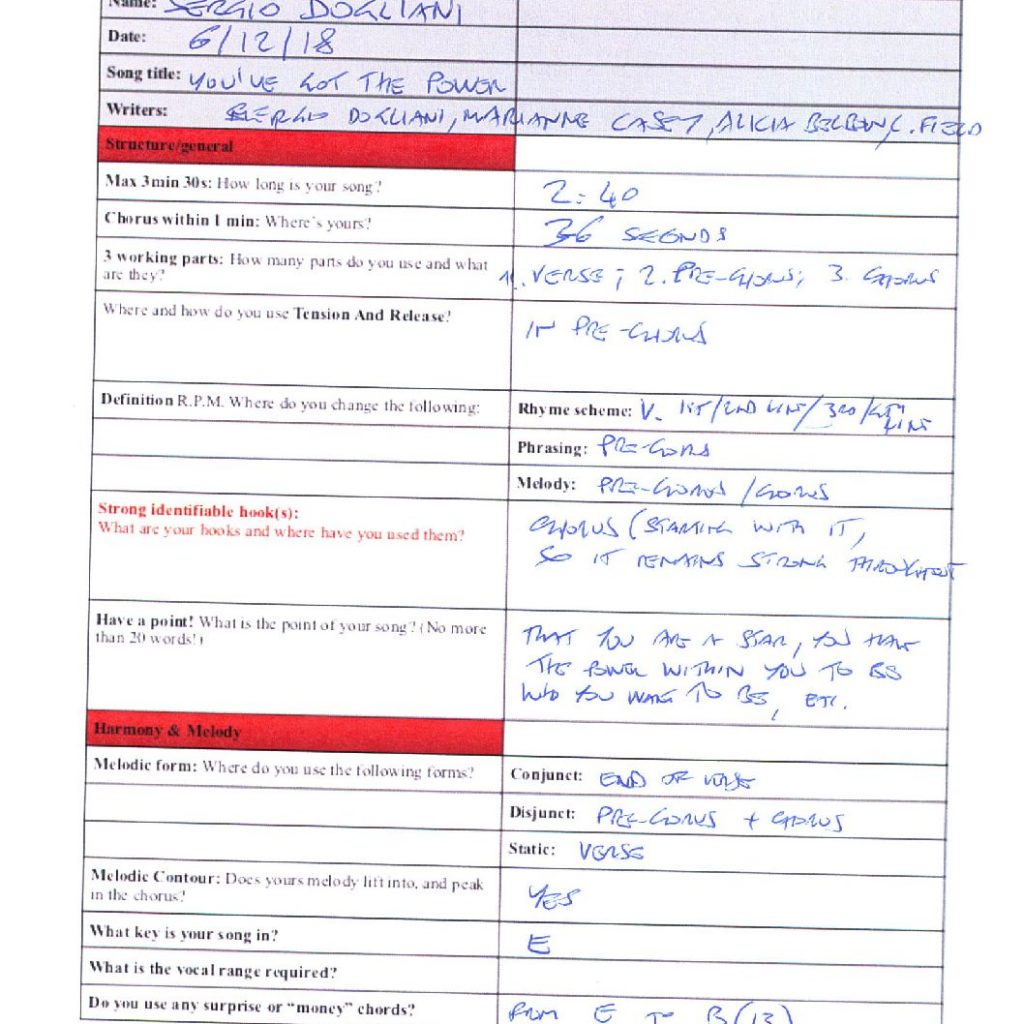 Name: SERGIO DOGLIANI
Date: 6/12/18
Song title: YOU'VE GOT THE POWER
Writers: SERGIO DOGLIANI, MARIANNE CASEY, ALICIA C. FIELD
Structure/general
Max 3min 30s: How long is your song? 2:40
Chorus within 1 min: Where's yours? 36 SECONDS
3 working parts: How many parts do you use and what
are they? 1. VERSE; 2. PRE-CHORUS; 3. CHORUS
Where and how do you use Tension And Release? IN PRE-CHORUS
Definition R.P.M. Where do you change the following: Rhyme scheme: V. 1ST/2ND LINE/3RD/4TH
LINE
Phrasing: PRE-CHORUS
Melody: PRE-CHORUS/CHORUS
Strong identifiable hook(s):
What are your hooks and where have you used them?
CHORUS (STARTING WITH IT,
SO IT REMAINS STRONG THROUGHOUT
Have a point! What is the point of your song? (No more
than 20 words!)
THAT YOU ARE A STAR, YOU HAVE
THE POWER WITHIN YOU TO BE
WHO YOU WANT TO BE, ETC.
Harmony & Melody
Melodic form: Where do you use the following forms? Conjunct: END OF VERSE
Disjunct: PRE-CHORUS + CHORUS
Static: VERSE
Melodic Contour: Does yours melody lift into, and peak
in the chorus? YES
What key is your song in? E
What is the vocal range required?
Do you use any surprise or "money" chords? FROM E TO B (13)